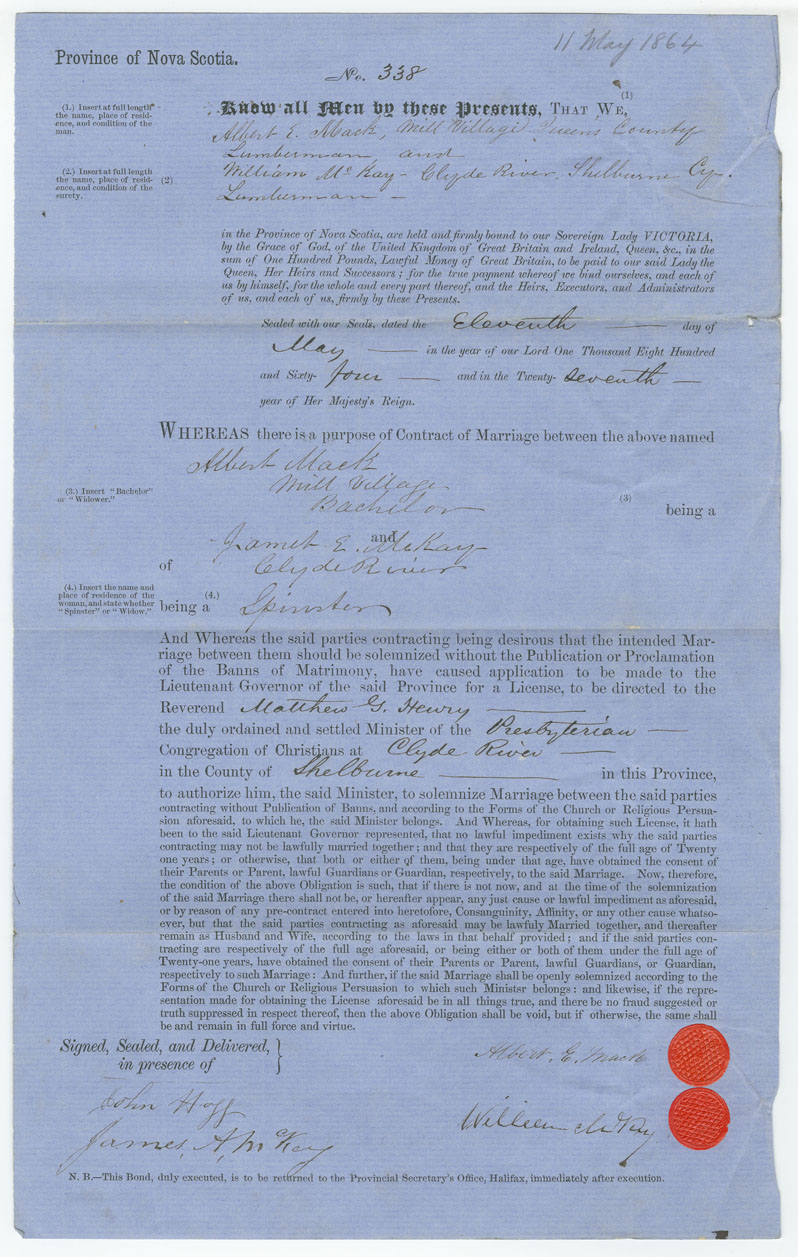 11 May 1864
Province of Nova Scotia.
No. 338
(1.) Insert at full length
the name, place of resid-
ence, and condition of the
man.
(1)
Know all Men by these Presents, THAT WE,
Albert E. Mack, Mill Village Queens County
Lumberman and
(2.) Insert at full length
the name, place of resid-
ence, and condition of the
surety.
(2)
William McKay - Clyde River, Shelburne Cy.
Lumberman -
in the Province of Nova Scotia, are held and firmly bound to our Sovereign Lady VICTORIA,
by the Grace of God, of the United Kingdom of Great Britain and Ireland, Queen, &c., in the
sum of One Hundred Pounds, Lawful Money of Great Britain, to be paid to our said Lady the
Queen, Her Heirs and Successors; for the true payment whereof we bind ourselves, and each of
us by himself, for the whole and every part thereof, and the Heirs, Executors, and Administrators
of us, and each of us, firmly by these Presents.
Sealed with our Seals, dated the Eleventh — day of
May — in the year of our Lord One Thousand Eight Hundred
and Sixty- four — and in the Twenty- seventh —
year of Her Majesty's Reign.
WHEREAS there is a purpose of Contract of Marriage between the above named
Albert Mack
Mill Village
(3.) Insert "Bachelor"
or "Widower."
Bachelor
(3)
being a
and
Janet E. McKay
of Clyde River
(4.) Insert the name and
place of residence of the
woman, and state whether
"Spinster" or "Widow."
(4.)
being a Spinster
And Whereas the said parties contracting being desirous that the intended Mar-
riage between them should be solemnized without the Publication or Proclamation
of the Banns of Matrimony, have caused application to be made to the
Lieutenant Governor of the said Province for a License, to be directed to the
Reverend Matthew G. Henry —
the duly ordained and settled Minister of the Presbyterian —
Congregation of Christians at Clyde River —
in the County of Shelburne — in this Province,
to authorize him, the said Minister, to solemnize Marriage between the said parties
contracting without Publication of Banns, and according to the Forms of the Church or Religious Persua-
sion aforesaid, to which he, the said Minister belongs. And Whereas, for obtaining such License, it hath
been to the said Lieutenant Governor represented, that no lawful impediment exists why the said parties
contracting may not be lawfully married together; and that they are respectively of the full age of Twenty
one years; or otherwise, that both or either of them, being under that age, have obtained the consent of
their Parents or Parent, lawful Guardians or Guardian, respectively, to the said Marriage. Now, therefore,
the condition of the above Obligation is such, that if there is not now, and at the time of the solemnization
of the said Marriage there shall not be, or hereafter appear, any just cause or lawful impediment as aforesaid,
or by reason of any pre-contract entered into heretofore, Consanguinity, Affinity, or any other cause whatso-
ever, but that the said parties contracting as aforesaid may be lawfuly Married together, and thereafter
remain as Husband and Wife, according to the laws in that behalf provided; and if the said parties con-
tracting are respectively of the full age aforesaid, or being either or both of them under the full age of
Twenty-one years, have obtained the consent of their Parents or Parent, lawful Guardians, or Guardian,
respectively to such Marriage: And further, if the said Marriage shall be openly solemnized according to the
Forms of the Church or Religious Persuasion to which such Minister belongs: and likewise, if the repre-
sentation made for obtaining the License aforesaid be in all things true, and there be no fraud suggested or
truth suppressed in respect thereof, then the above Obligation shall be void, but if otherwise, the same shall
be and remain in full force and virtue.
Signed, Sealed, and Delivered,
in presence of
Albert. E. Mack
John Hogg
William McKay
James, A, McKey
N. B.—This Bond, duly executed, is to be returned to the Provincial Secretary's Office, Halifax, immediately after execution.